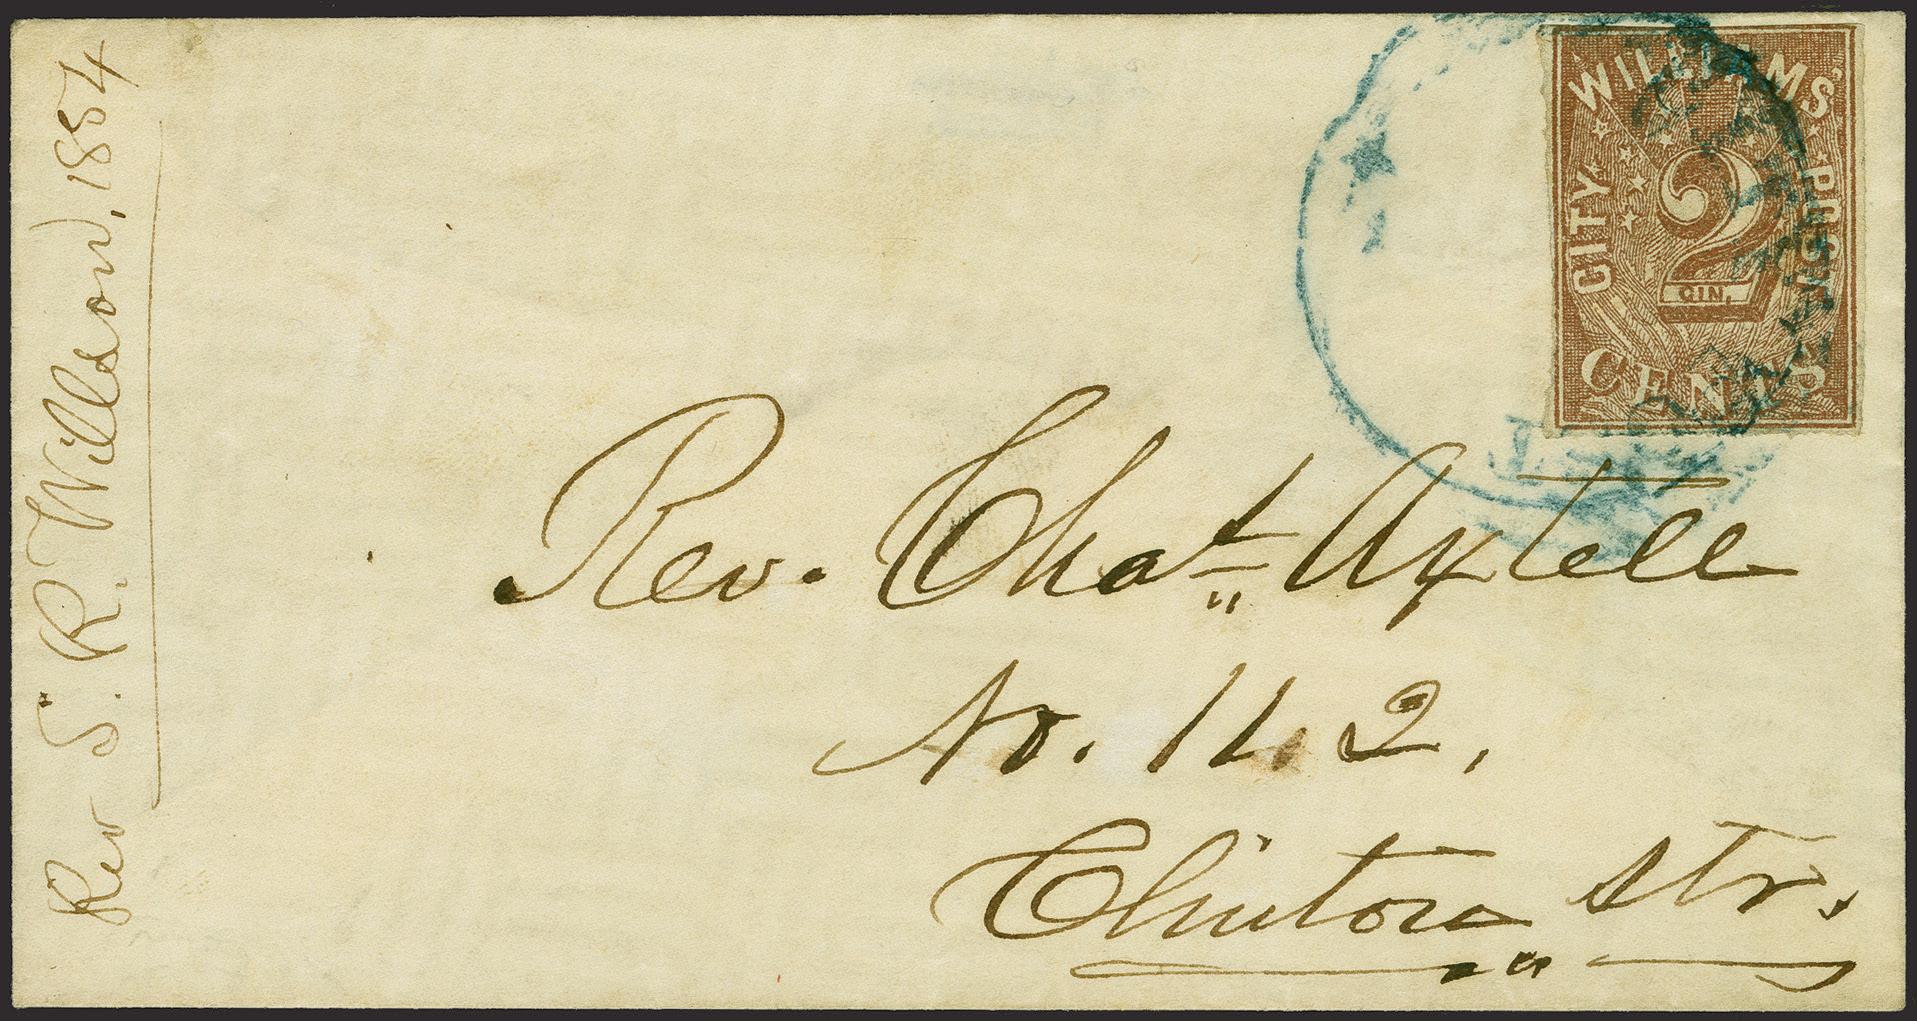 Rev S. R. Willson, 1854
WILLIAMS'
CITY POST
2
CIN.
CENTS
Rev. Chas. Axtell
No. 112,
Clinton Str.